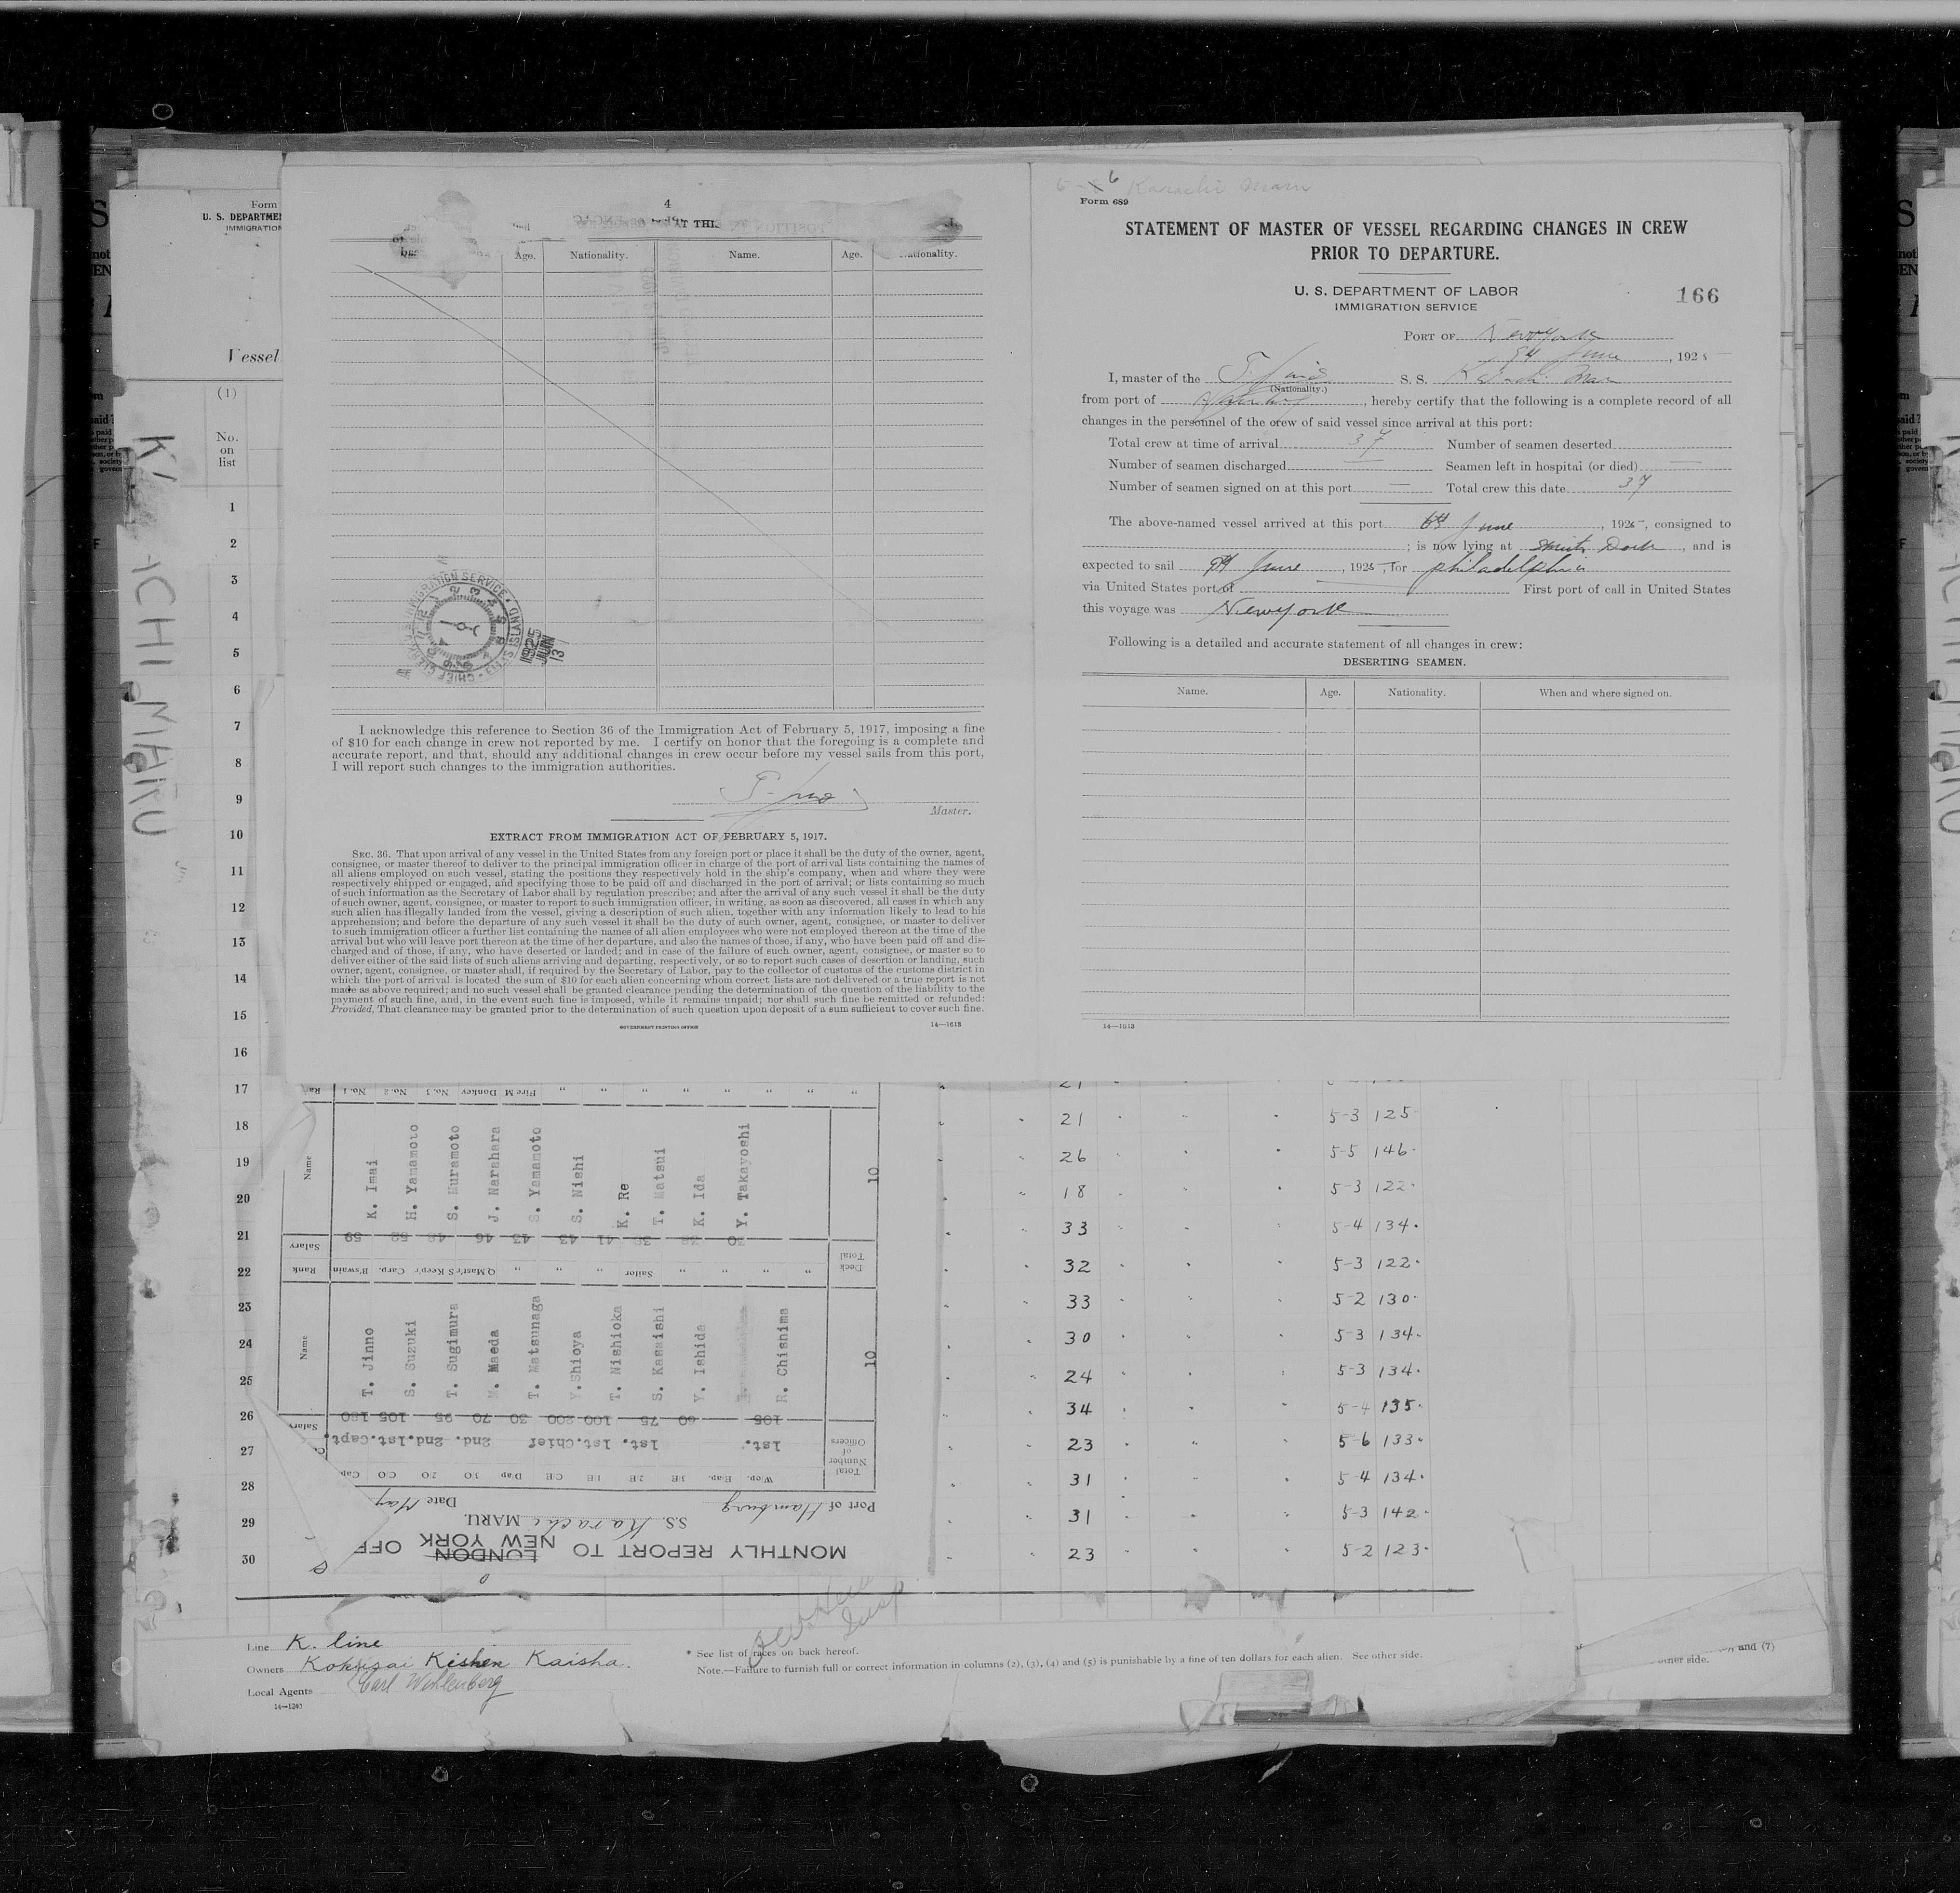 4
Age. Nationality. Name. Age.
I acknowledge this reference to Section 36 of the Immigration Act of February 5, 1917, imposing a fine
of $10 for each change in crew not reported by me. I certify on honor that the foregoing is a complete and
accurate report, and that, should any additional changes in crew occur before my vessel sails from this port,
I will report such changes to the immigration authorities.
Master.
EXTRACT FROM IMMIGRATION ACT OF FEBRUARY 5, 1917.
SEC. 36. That upon arrival of any vessel in the United States from any foreign port or place it shall be the duty of the owner, agent,
consignee, or master thereof to deliver to the principal immigration officer in charge of the port of arrival lists containing the names of
all aliens employed on such vessel, stating the positions they respectively hold in the ship's company, when and where they were
respectively shipped or engaged, and specifying those to be paid off and discharged in the port of arrival; or lists containing so much
of such information as the Secretary of Labor shall by regulation prescribe; and after the arrival of any such vessel it shall be the duty
of such owner, agent, consignee, or master to report to such immigration officer, in writing, as soon as discovered, all cases in which any
such alien has illegally landed from the vessel, giving a description of such alien, together with any information likely to lead to his
apprehension; and before the departure of any such vessel it shall be the duty of such owner, agent, consignee, or master to deliver
to such immigration officer a further list containing the names of all alien employees who were not employed thereon at the time of the
arrival but who will leave port thereon at the time of her departure, and also the names of those, if any, who have been paid off and dis-
charged and of those, if any, who have deserted or landed; and in case of the failure of such owner, agent, consignee, or master so to
deliver either of the said lists of such aliens arriving and departing, respectively, or so to report such cases of desertion or landing, such
owner, agent, consignee, or master shall, if required by the Secretary of Labor, pay to the collector of customs of the customs district in
which the port of arrival is located the sum of $10 for each alien concerning whom correct lists are not delivered or a true report is not
made as above required; and no such vessel shall be granted clearance pending the determination of the question of the liability to the
payment of such fine, and, in the event such fine is imposed, while it remains unpaid; nor shall such fine be remitted or refunded:
Provided, That clearance may be granted prior to the determination of such question upon deposit of a sum sufficient to cover such fine.
GOVERNMENT PRINTING OFFICE 14—1613
1925 JUN 13
Karachi Maru
Form 689
STATEMENT OF MASTER OF VESSEL REGARDING CHANGES IN CREW
PRIOR TO DEPARTURE.
U. S. DEPARTMENT OF LABOR
IMMIGRATION SERVICE
166
PORT OF New York
June, 192
I, master of the S. S. Karachi Maru
(Nationality.)
from port of Hamburg, hereby certify that the following is a complete record of all
changes in the personnel of the crew of said vessel since arrival at this port:
Total crew at time of arrival 37 Number of seamen deserted
Number of seamen discharged — Seamen left in hospital (or died) —
Number of seamen signed on at this port — Total crew this date 37
The above-named vessel arrived at this port 6th June, 1925, consigned to
; is now lying at Smith Dock, and is
expected to sail 9th June, 1925, for Philadelphia
via United States port of First port of call in United States
this voyage was New York
Following is a detailed and accurate statement of all changes in crew:
DESERTING SEAMEN.
Name. Age. Nationality. When and where signed on.
14—1613
Form
U. S. DEPARTME
IMMIGRATION
Vessel
(1)
No.
on
list
1
2
3
4
5
6
7
8
9
10
11
12
13
14
15
16
17 21
18 21 5-3 125
19 26 5-5 146
20 18 5-3 122
21 33 5-4 134
22 32 5-3 122
23 33 5-2 130
24 30 5-3 134
25 24 5-3 134
26 34 5-4 135
27 23 5-6 133
28 31 5-4 134
29 31 5-3 142
30 23 5-2 123
MONTHLY REPORT TO LONDON NEW YORK OFF
S.S. Karachi MARU.
Port of Hamburg Date May
Total Number of Officers 10
Name
T. Jinno
S. Suzuki
T. Sugimura
Maeda
T. Matsunaga
Y. Shioya
T. Nishioka
S. Kasaishi
Y. Ishida
R. Chishima
Rank B'swain Carp. S Keep'r Q Mast'r Sailor
Salary
Deck Total 10
Name
K. Imai
H. Yamamoto
S. Muramoto
J. Narahara
S. Yamamoto
S. Nishi
K. Re
T. Matsui
K. Ida
Y. Takayoshi
No. 1 No. 2 No. 3 Donkey Fire M
Line K. line
Owners Kokusai Kishen Kaisha.
Local Agents Carl Wihlenberg
14—1240
* See list of races on back hereof.
Note.—Failure to furnish full or correct information in columns (2), (3), (4) and (5) is punishable by a fine of ten dollars for each alien. See other side.
and (7)
other side.